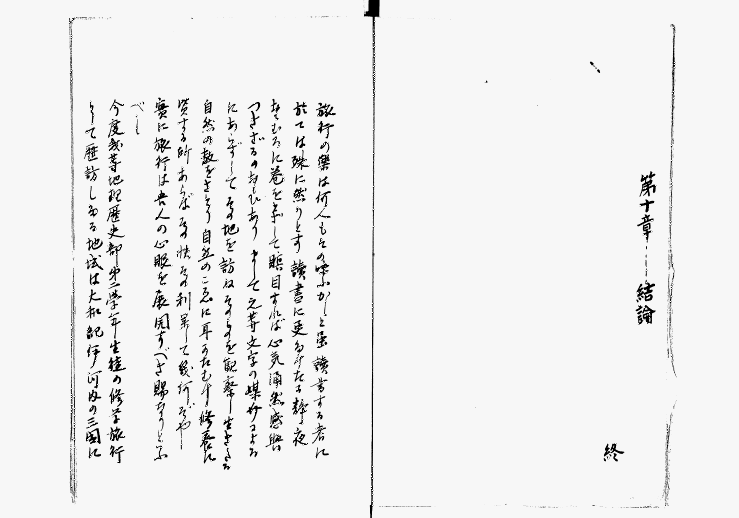 第十章 結論
終
旅行の樂は何人もその味ふかしと雖讀書する者に
於ては殊に然りとす讀書に更るけたる靜夜
巻を
して瞑目すれば心気湧然感興
つきざるのおもひありまして之等文字の媒介による
にあらずしてその地を訪ねそのものを観察し生きたる
自然の教をさとり自然のこゑに耳かたむけ修養に
資する所あらばその快その利果して幾何ぞや
實に旅行は吾人の心眼を展開すべき賜なりといふ
べし
今度我等地理歴史部第二學年生徒の修学旅行
として歴訪したる地域は大和紀伊河内の三國に